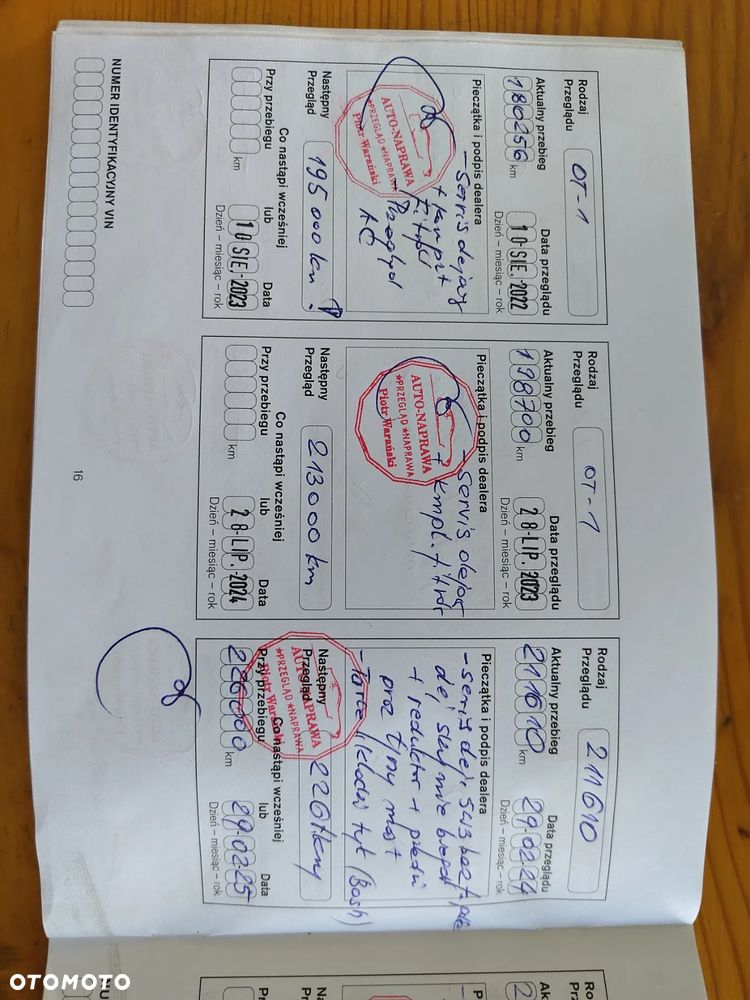 Rodzaj
Przeglądu
OT-1
Aktualny przebieg
Data przeglądu
180256 km
10·SIE.·2022
Dzień – miesiąc – rok
Pieczątka i podpis dealera
- Serwis olejowy
+ kompl.
AUTO-NAPRAWA
★PRZEGLĄD ★NAPRAWA
Piotr Warański
Następny
Przegląd
195 000 km
Co nastąpi wcześniej
Przy przebiegu
lub
Data
km
10·SIE.·2023
Dzień – miesiąc – rok
Rodzaj
Przeglądu
OT-1
Aktualny przebieg
Data przeglądu
198700 km
28·LIP.·2023
Dzień – miesiąc – rok
Pieczątka i podpis dealera
- Serwis olejow
+ kmpl. filtrów
AUTO-NAPRAWA
★PRZEGLĄD ★NAPRAWA
Piotr Warański
Następny
Przegląd
213000 km
Co nastąpi wcześniej
Przy przebiegu
lub
Data
km
28·LIP.·2024
Dzień – miesiąc – rok
Rodzaj
Przeglądu
211610
Aktualny przebieg
Data przeglądu
211610 km
29·02·24
Dzień – miesiąc – rok
Pieczątka i podpis dealera
+ reduktor + przedni
oraz tylny most
- Tarcze i klocki tył (Bosh)
AUTO-NAPRAWA
★PRZEGLĄD ★NAPRAWA
Piotr Warański
Następny
Przegląd
226
Co nastąpi wcześniej
Przy przebiegu
lub
Data
226000 km
29·02·25
Dzień – miesiąc – rok
NUMER IDENTYFIKACYJNY VIN
16
Rodzaj
OTOMOTO